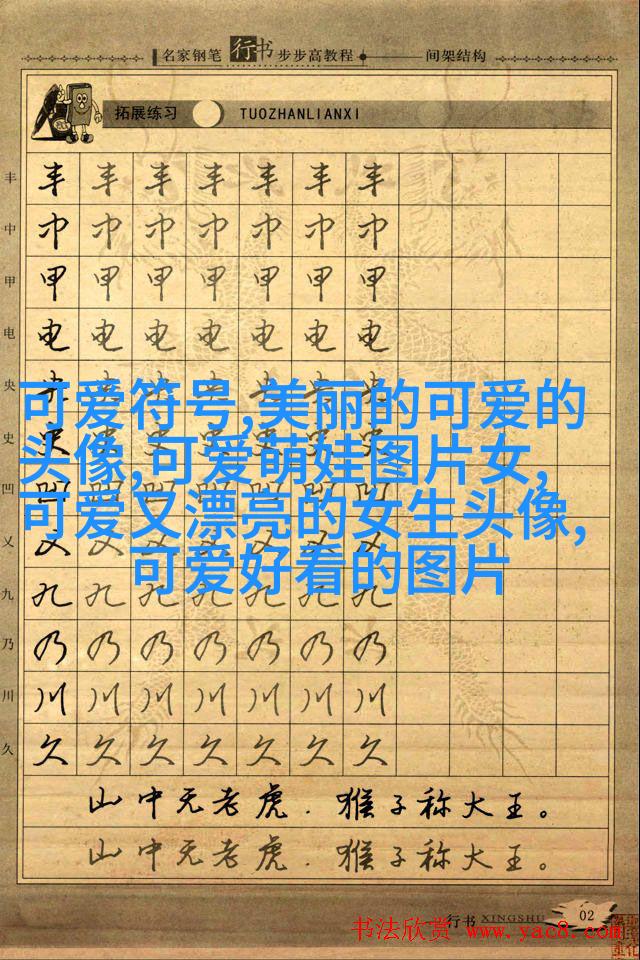 名家钢笔行书步步高教程 间架结构
拓展练习 TUOZHANLIANXI
丰 丰 丰 丰 丰 丰 丰 丰
中 中 中 中 中 中 中 中
甲 甲 甲 甲 甲 甲 甲 甲
电 电 电 电 电 电 电 电
央 央 央 央 央 央 央 央
可爱符号,美丽的可爱的
史 史 史 史 史 史 史 史
头像,可爱萌娃图片女,
凹 凹 凹 凹 凹 凹 凹 凹
可爱又漂亮的女生头像,
乂 乂 乂 乂 乂 乂 乂 乂
可爱好看的图片
九 九 九 九 九 九 九 九
乃 乃 乃 乃 乃 乃 乃 乃
川 川 川 川 川 川 川 川
久 久 久 久 久 久 久 久
山中无老虎.猴子称大王。
山中无老虎.猴子称大王。
行书 XINGSHU 02
书法欣赏 www.yac8.com